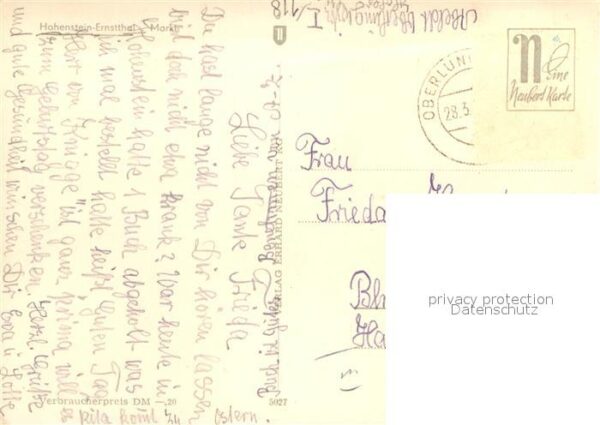 Hohenstein-Ernstthal, Markt
Liebe Tante Frieda
Du hast lange nicht von Dir hören lassen
bist doch nicht etwa krank? War heute in
Hohenstein hatte 1 Buch abgeholt was
ich mal bestellt hatte heißt "Guten Tag
Herr von Knigge" ist ganz prima will
zum Geburtstag verschenken. Herzl. Grüße
und gute Gesundheit wünschen Dir Eva u. Lotte
Buch ist Gutes Benehmen von
Ostern.
Verbraucherpreis DM –.20
5027
VERLAG ERHARD NEUBERT
I/118
OBERLUN
28.3.
n eine
Neubert Karte
Frau
Frieda
Bl
Ha
privacy protection
Datenschutz